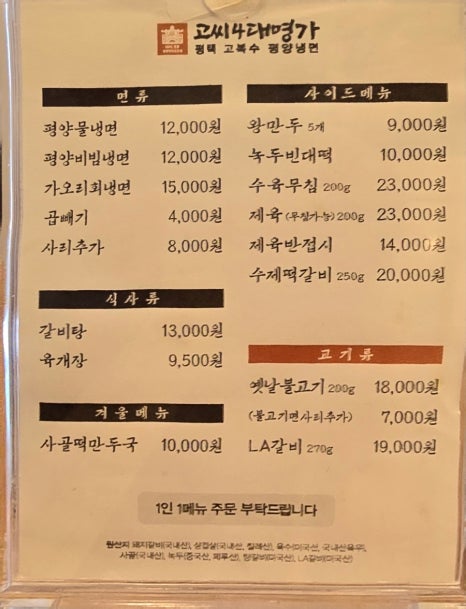 고씨4대명가
평택 고복수 평양냉면
면류
평양물냉면 12,000원
평양비빔냉면 12,000원
가오리회냉면 15,000원
곱빼기 4,000원
사리추가 8,000원
식사류
갈비탕 13,000원
육개장 9,500원
겨울메뉴
사골떡만두국 10,000원
사이드메뉴
왕만두 5개 9,000원
녹두빈대떡 10,000원
수육무침 200g 23,000원
제육 (무침가능) 200g 23,000원
제육반접시 14,000원
수제떡갈비 250g 20,000원
고기류
옛날불고기 200g 18,000원
(불고기면사리추가) 7,000원
LA갈비 270g 19,000원
1인 1메뉴 주문 부탁드립니다
원산지 돼지갈비(국내산), 삼겹살(국내산, 칠레산), 육수(미국산, 국내산육우),
사골(국내산), 녹두(중국산, 페루산), 탕갈비(미국산), LA갈비(미국산)